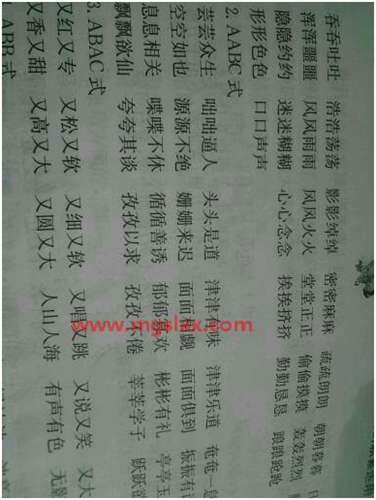 吞吞吐吐 浩浩荡荡 影影绰绰 密密麻麻 疏疏朗朗 朝朝暮暮
浑浑噩噩 风风雨雨 风风火火 堂堂正正 偷偷摸摸 轰轰烈烈
隐隐约约 迷迷糊糊 心心念念 挨挨挤挤 勤勤恳恳 踉踉跄跄
形形色色 口口声声
2. AABC式
芸芸众生 咄咄逼人 头头是道 津津有味 津津乐道 奄奄一
空空如也 源源不绝 姗姗来迟 面面相觑 面面俱到 振振有
息息相关 喋喋不休 循循善诱 郁郁寡欢 彬彬有礼 亭亭玉
飘飘欲仙 夸夸其谈 孜孜以求 孜孜不倦 莘莘学子 跃跃
3. ABAC式
又红又专 又松又软 又细又软 又唱又跳 又说又笑 又大
又香又甜 又高又大 又圆又大 人山人海 有声有色 无
ABB式